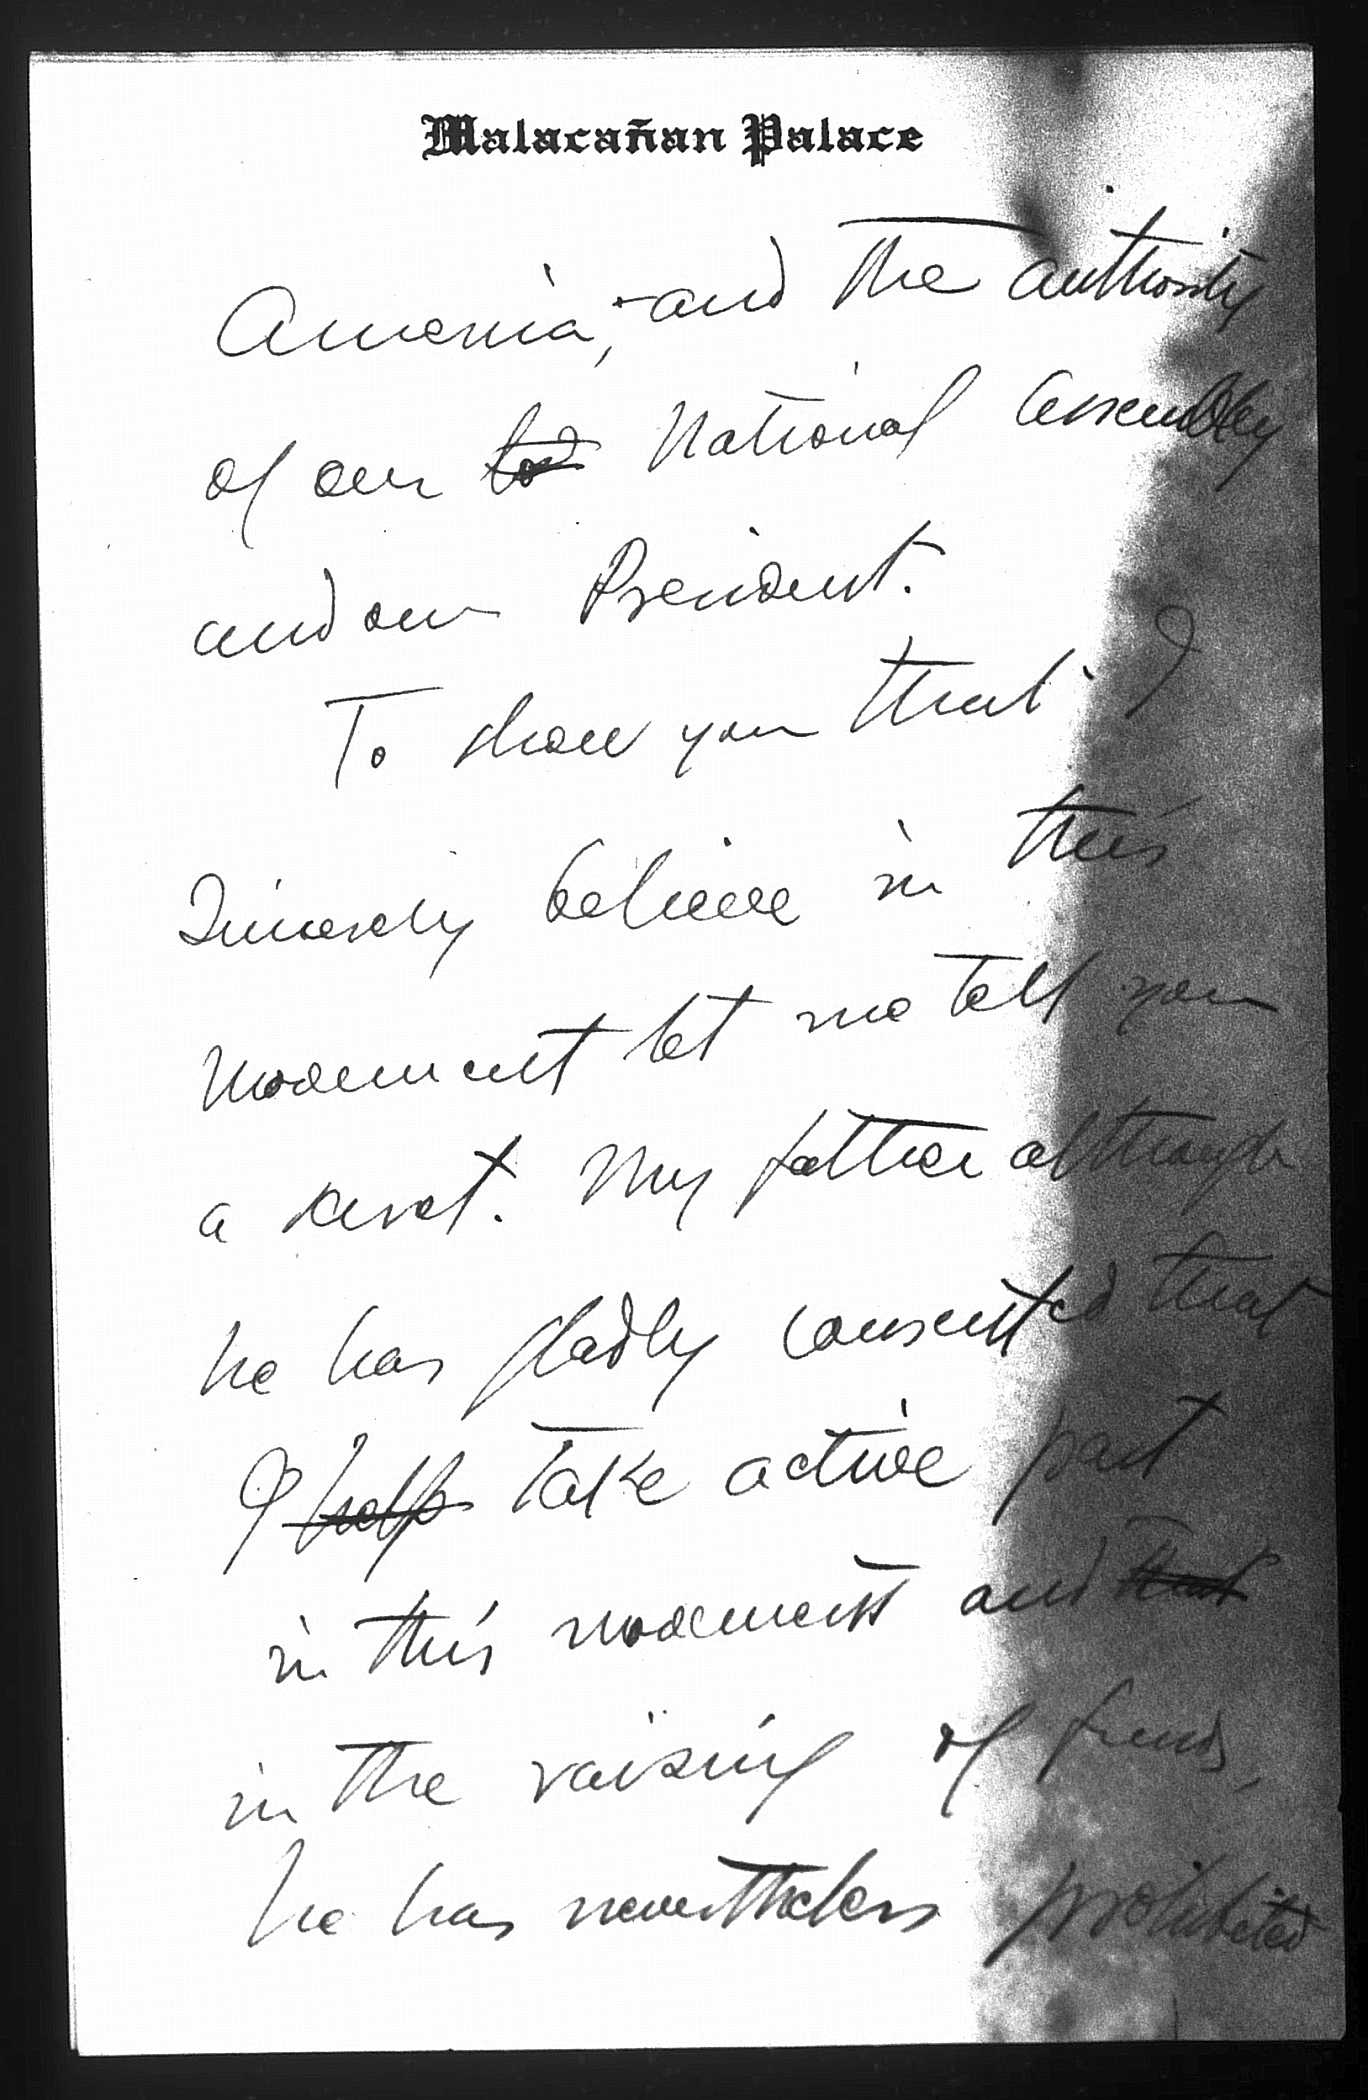 Malacañan Palace
America, and the authority
of our National Assembly
and our President.
To show you that I
sincerely believe in this
movement let me tell you
a secret. My father although
he has gladly consented that
I help take active part
in this movement and that
in the raising of funds,
he has nevertheless prohibited